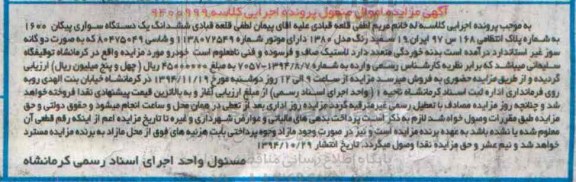 آگهی مزایده اموال منقول پرونده اجرایی کلاسه ۹۴۰۰۹۹۹
به موجب پرونده اجرایی کلاسه به خانم مریم لطفی قلعه قبادی علیه آقای پیمان لطفی قلعه قبادی ششدانگ یک دستگاه سواری پیکان ۱۶۰۰
به شماره پلاک انتظامی ۱۶۸ س ۹۷ ایران ۱۹ سفید رنگ مدل ۱۳۸۰ دارای موتور شماره ۱۱۳۸۰۷۲۵۴۹ و شاسی ۸۰۴۷۵۰۴۹ که به صورت دوگانه
سوز غیر استاندارد در آمده است بدنه خوردگی متعدد دارد لاستیک صاف و فرسوده و فنی نامعلوم است خودرو مورد مزایده واقع در کرمانشاه توقیفگاه
سلیمانی میباشد که برابر نظریه کارشناس رسمی وارده به شماره ۷۰۵۷-۱۳۹۴/۸/۷ به مبلغ ۴۵۰۰۰۰۰۰ ریال (چهل و پنج میلیون ریال) ارزیابی
گردیده و از طریق مزایده حضوری به فروش میرسد مزایده از ساعت ۹ الی ۱۲ روز دوشنبه مورخ ۱۳۹۴/۱۱/۱۹ در کرمانشاه خیابان بنت الهدی روبه
روی فرمانداری اداره ثبت اسناد کرمانشاه ناحیه ۱ (واحد اجرای اسناد رسمی) از مبلغ ارزیابی آغاز و به بالاترین قیمت پیشنهادی نقدا فروخته خواهد
شد و چنانچه روز مزایده مصادف با تعطیل رسمی غیر مترقبه گردد مزایده روز اداری بعد از تعطیلی در همان محل و ساعت انجام میشود و حقوق دولتی و حق
مزایده طبق مقررات وصول خواهد شد لازم به ذکر است پرداخت بدهی های مالیاتی و عوارض شهرداری و غیره تا تاریخ مزایده اعم از اینکه رقم قطعی آن
معلوم شده یا نشده باشد به عهده برنده مزایده است و نیز در صورت وجود مازاد وجوه پرداختی بابت هزینه های فوق از محل مازاد به برنده مزایده مسترد
خواهد شد و نیم عشر و حق مزایده نقدا وصول میگردد. تاریخ انتشار ۱۳۹۴/۱۰/۲۹
مسئول واحد اجرای اسناد رسمی کرمانشاه